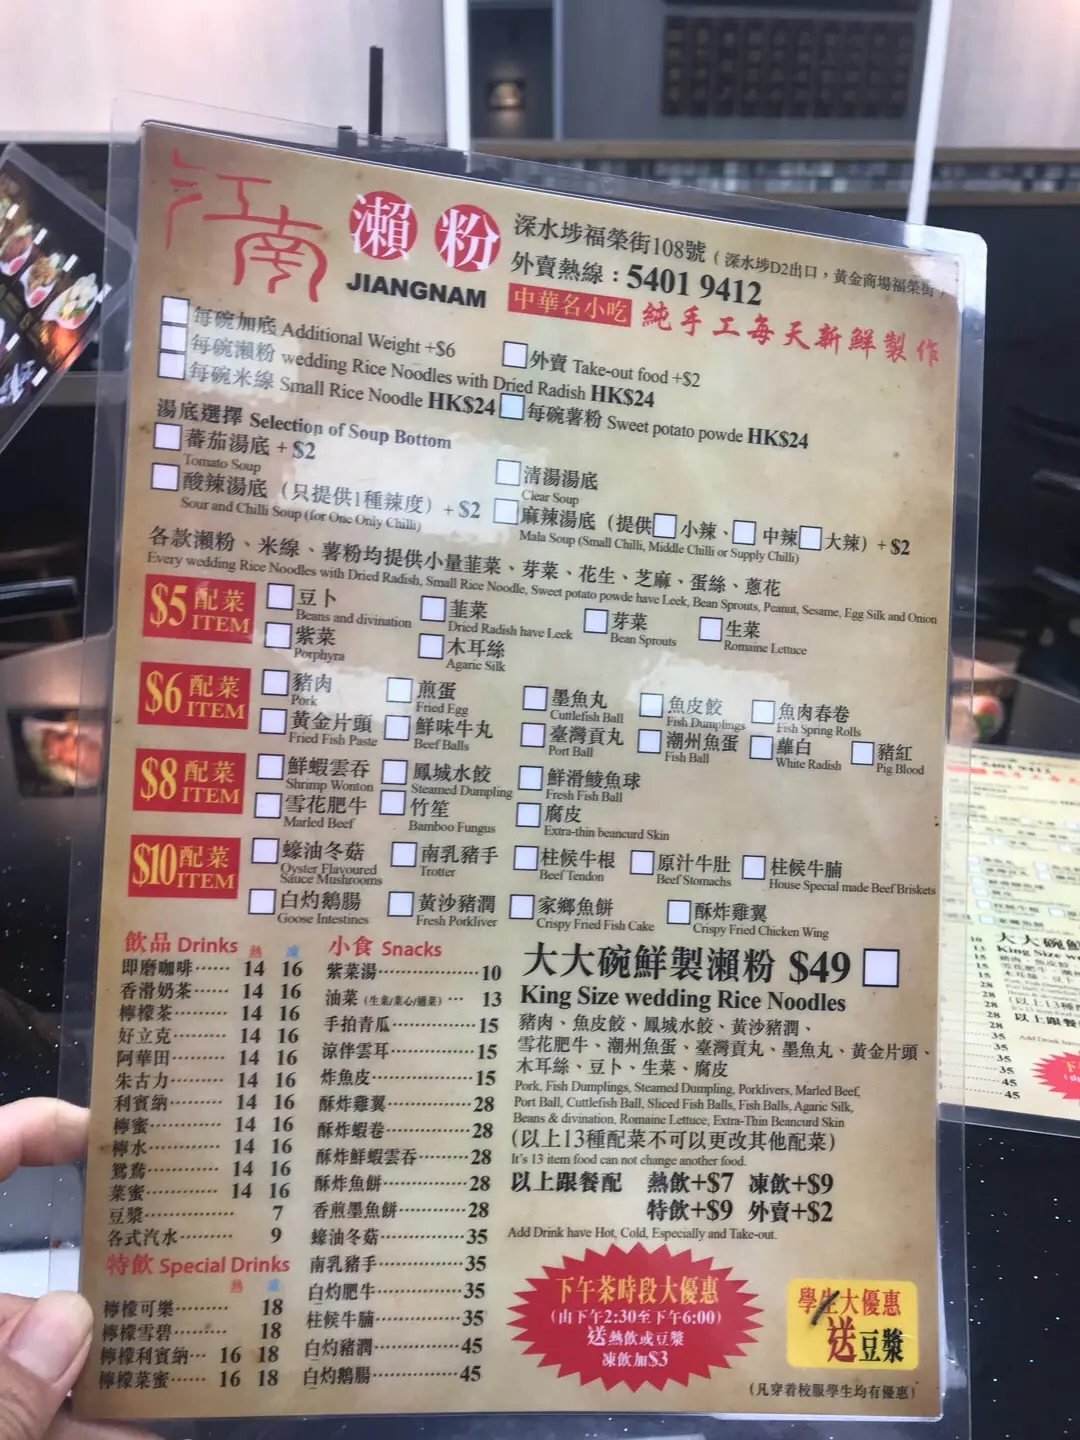 江南 瀨粉
JIANGNAM
深水埗福榮街108號（深水埗D2出口，黃金商場福榮街）
外賣熱線：5401 9412
中華名小吃 純手工每天新鮮製作
每碗加底 Additional Weight +$6
外賣 Take-out food +$2
每碗瀨粉 wedding Rice Noodles with Dried Radish HK$24
每碗米線 Small Rice Noodle HK$24
每碗薯粉 Sweet potato powde HK$24
湯底選擇 Selection of Soup Bottom
蕃茄湯底 + $2
Tomato Soup
清湯湯底
Clear Soup
酸辣湯底（只提供1種辣度）+ $2
Sour and Chilli Soup (for One Only Chilli)
麻辣湯底（提供 小辣、 中辣 大辣）+ $2
Mala Soup (Small Chilli, Middle Chilli or Supply Chilli)
各款瀨粉、米線、薯粉均提供小量韮菜、芽菜、花生、芝麻、蛋絲、蔥花
Every wedding Rice Noodles with Dried Radish, Small Rice Noodle, Sweet potato powde have Leek, Bean Sprouts, Peanut, Sesame, Egg Silk and Onion
$5 配菜 ITEM
豆卜 韮菜 芽菜 生菜
Beans and divination Dried Radish have Leek Bean Sprouts Romaine Lettuce
紫菜 木耳絲
Porphyra Agaric Silk
$6 配菜 ITEM
豬肉 煎蛋 墨魚丸 魚皮餃 魚肉春卷
Pork Fried Egg Cuttlefish Ball Fish Dumplings Fish Spring Rolls
黃金片頭 鮮味牛丸 臺灣貢丸 潮州魚蛋 蘿白 豬紅
Fried Fish Paste Beef Balls Port Ball Fish Ball White Radish Pig Blood
$8 配菜 ITEM
鮮蝦雲吞 鳳城水餃 鮮滑鯪魚球
Shrimp Wonton Steamed Dumpling Fresh Fish Ball
雪花肥牛 竹笙 腐皮
Marled Beef Bamboo Fungus Extra-thin beancurd Skin
$10 配菜 ITEM
蠔油冬菇 南乳豬手 柱候牛根 原汁牛肚 柱候牛腩
Oyster Flavoured Sauce Mushrooms Trotter Beef Tendon Beef Stomachs House Special made Beef Briskets
白灼鵝腸 黃沙豬潤 家鄉魚餅 酥炸雞翼
Goose Intestines Fresh Porkliver Crispy Fried Fish Cake Crispy Fried Chicken Wing
飲品 Drinks 熱 凍
即磨咖啡⋯⋯ 14 16
香滑奶茶⋯⋯ 14 16
檸檬茶⋯⋯⋯ 14 16
好立克⋯⋯⋯ 14 16
阿華田⋯⋯⋯ 14 16
朱古力⋯⋯⋯ 14 16
利賓納⋯⋯⋯ 14 16
檸蜜⋯⋯⋯⋯ 14 16
檸水⋯⋯⋯⋯ 14 16
鴛鴦⋯⋯⋯⋯ 14 16
菜蜜⋯⋯⋯⋯ 14 16
豆漿⋯⋯⋯⋯⋯ 7
各式汽水⋯⋯⋯ 9
特飲 Special Drinks
熱 凍
檸檬可樂⋯⋯⋯ 18
檸檬雪碧⋯⋯⋯ 18
檸檬利賓納⋯ 16 18
檸檬菜蜜⋯⋯ 16 18
小食 Snacks
紫菜湯⋯⋯⋯⋯⋯10
油菜（生菜/菜心/通菜）⋯ 13
手拍青瓜⋯⋯⋯⋯⋯15
涼伴雲耳⋯⋯⋯⋯⋯15
炸魚皮⋯⋯⋯⋯⋯⋯15
酥炸雞翼⋯⋯⋯⋯⋯28
酥炸蝦卷⋯⋯⋯⋯⋯28
酥炸鮮蝦雲吞⋯⋯⋯28
酥炸魚餅⋯⋯⋯⋯⋯28
香煎墨魚餅⋯⋯⋯⋯28
蠔油冬菇⋯⋯⋯⋯⋯35
南乳豬手⋯⋯⋯⋯⋯35
白灼肥牛⋯⋯⋯⋯⋯35
柱候牛腩⋯⋯⋯⋯⋯35
白灼豬潤⋯⋯⋯⋯⋯45
白灼鵝腸⋯⋯⋯⋯⋯45
大大碗鮮製瀨粉 $49
King Size wedding Rice Noodles
豬肉、魚皮餃、鳳城水餃、黃沙豬潤、
雪花肥牛、潮州魚蛋、臺灣貢丸、墨魚丸、黃金片頭、
木耳絲、豆卜、生菜、腐皮
Pork, Fish Dumplings, Steamed Dumpling, Porklivers, Marled Beef,
Port Ball, Cuttlefish Ball, Sliced Fish Balls, Fish Balls, Agaric Silk,
Beans & divination, Romaine Lettuce, Extra-Thin Beancurd Skin
(以上13種配菜不可以更改其他配菜)
It's 13 item food can not change another food.
以上跟餐配 熱飲+$7 凍飲+$9
特飲+$9 外賣+$2
Add Drink have Hot, Cold, Especially and Take-out.
下午茶時段大優惠
(由下午2:30至下午6:00)
送熱飲或豆漿
凍飲加$3
學生大優惠
送豆漿
(凡穿着校服學生均有優惠)